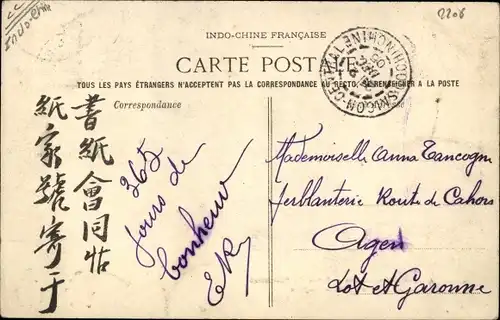 Indo-Chine
2206
INDO-CHINE FRANÇAISE
CARTE POSTALE
TOUS LES PAYS ÉTRANGERS N'ACCEPTENT PAS LA CORRESPONDANCE AU RECTO. SE RENSEIGNER A LA POSTE
Correspondance
SAIGON-CENTRAL
COCHINCHINE
書紙會同帖
紙家號寄于
365
jours de
bonheur
Mademoiselle Anna Tancogne
ferblanterie Route de Cahors
Agen
Lot et Garonne